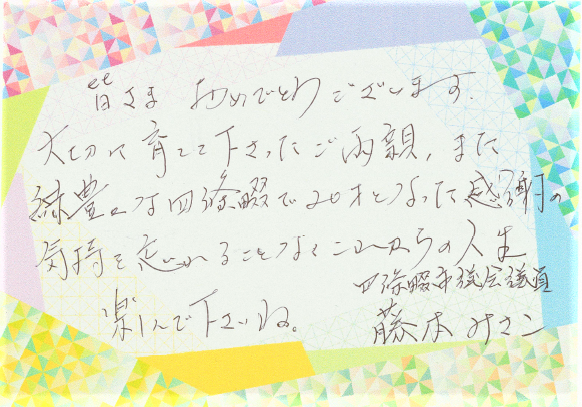 皆さま おめでとうございます。
大切に育てて下さったご両親、また
緑豊かな四條畷で20才となった感謝の
気持を忘れることなくこれからの人生
楽しんで下さいね。
四條畷市議会議員
藤本 みさ子